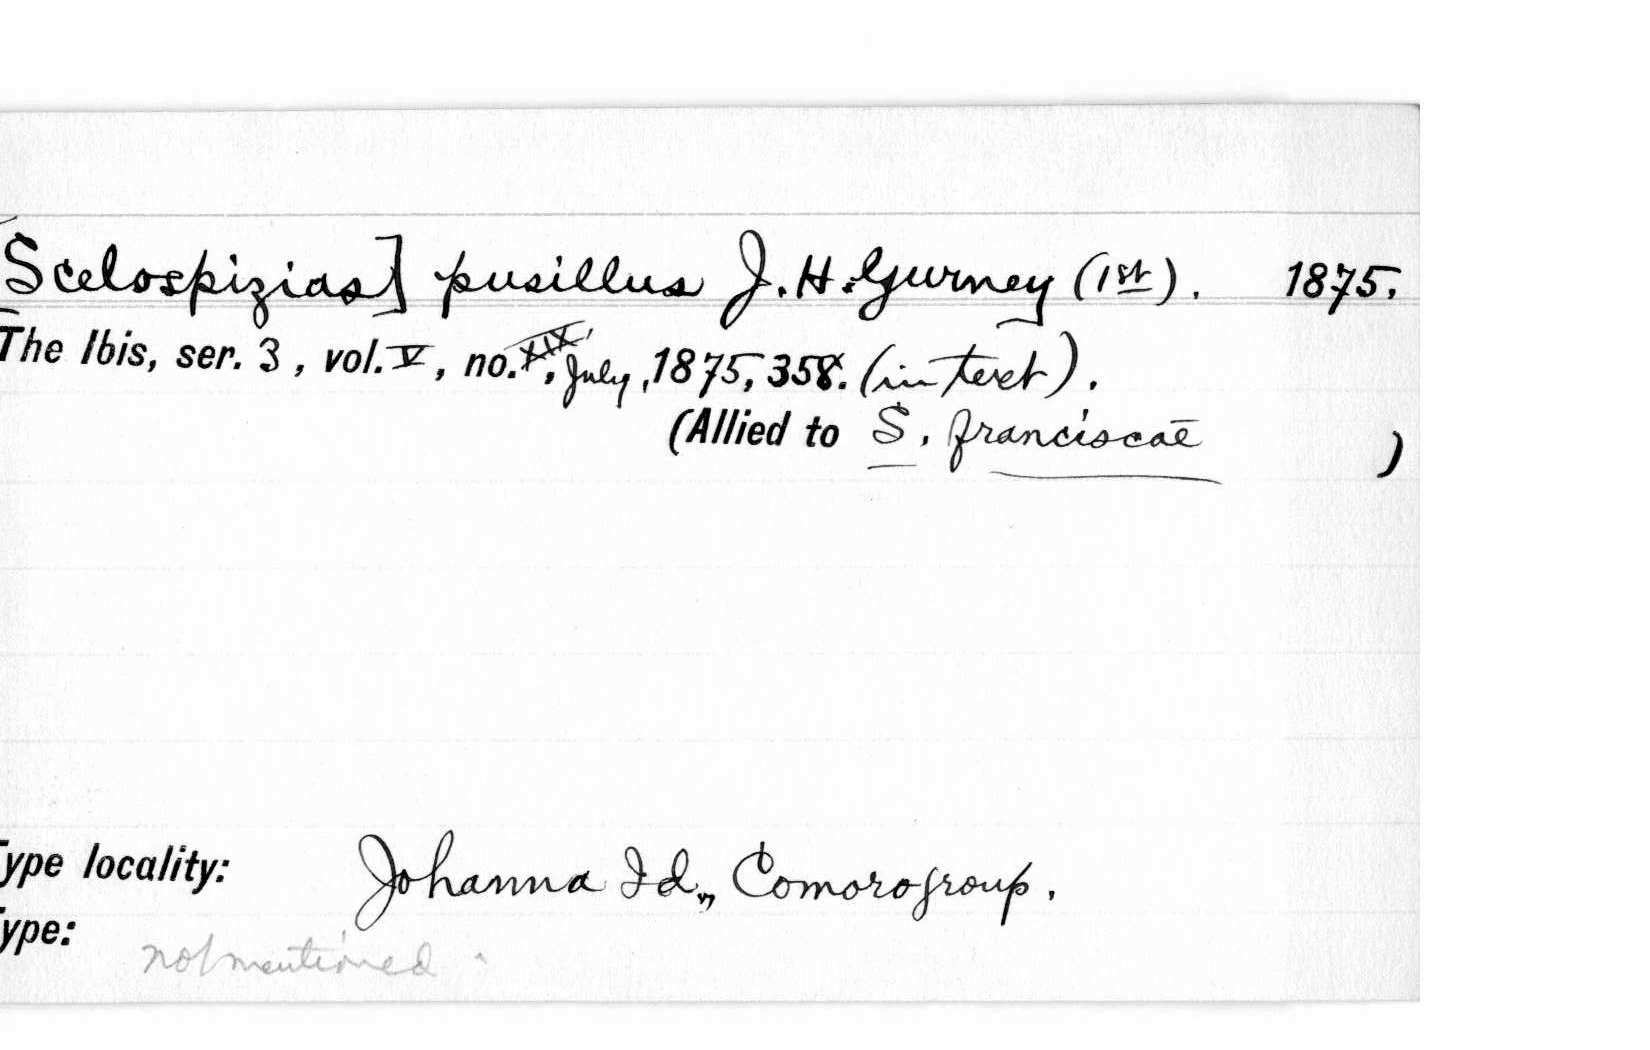 [Scelospizias] pusillus J. H. Gurney (1st). 1875.
The Ibis, ser. 3, vol. V, no. XIX, July, 1875, 358. (in text).
(Allied to S. franciscae )
Type locality: Johanna Id., Comoro group.
Type: not mentioned.